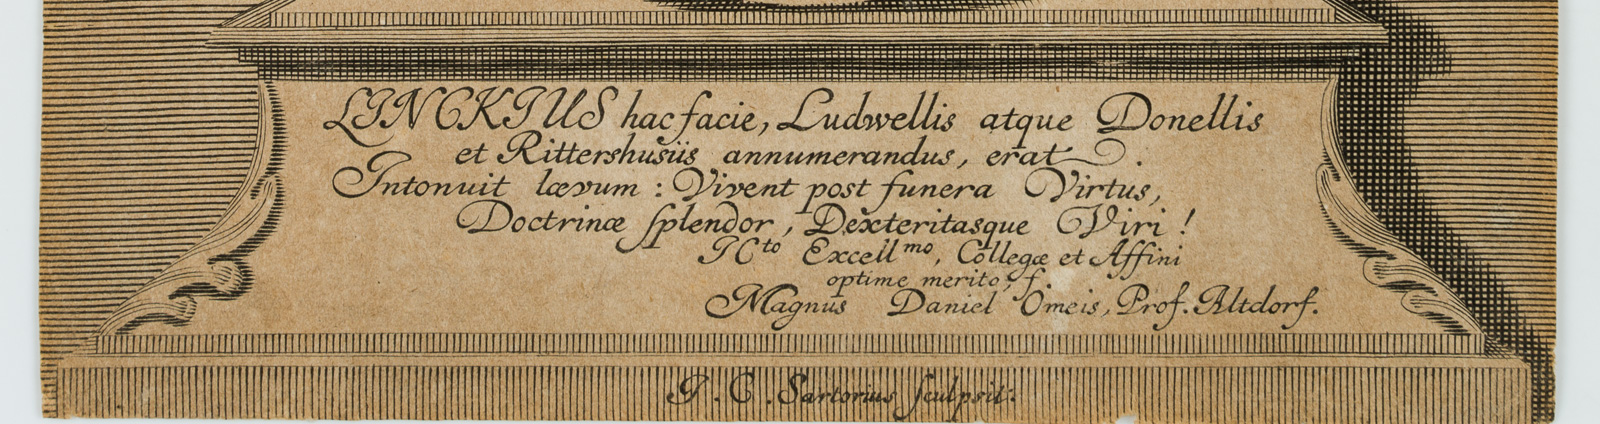 LINCKIUS hac facie, Ludwellis atque Donellis
et Rittershusiis annumerandus, erat.
Intonuit lævum : Vivent post funera Virtus,
Doctrinæ splendor, Dexteritasque Viri !
ICto Excellmo, Collegæ et Affini
optime merito, f.
Magnus Daniel Omeis, Prof. Altdorf.
J. C. Sartorius sculpsit: